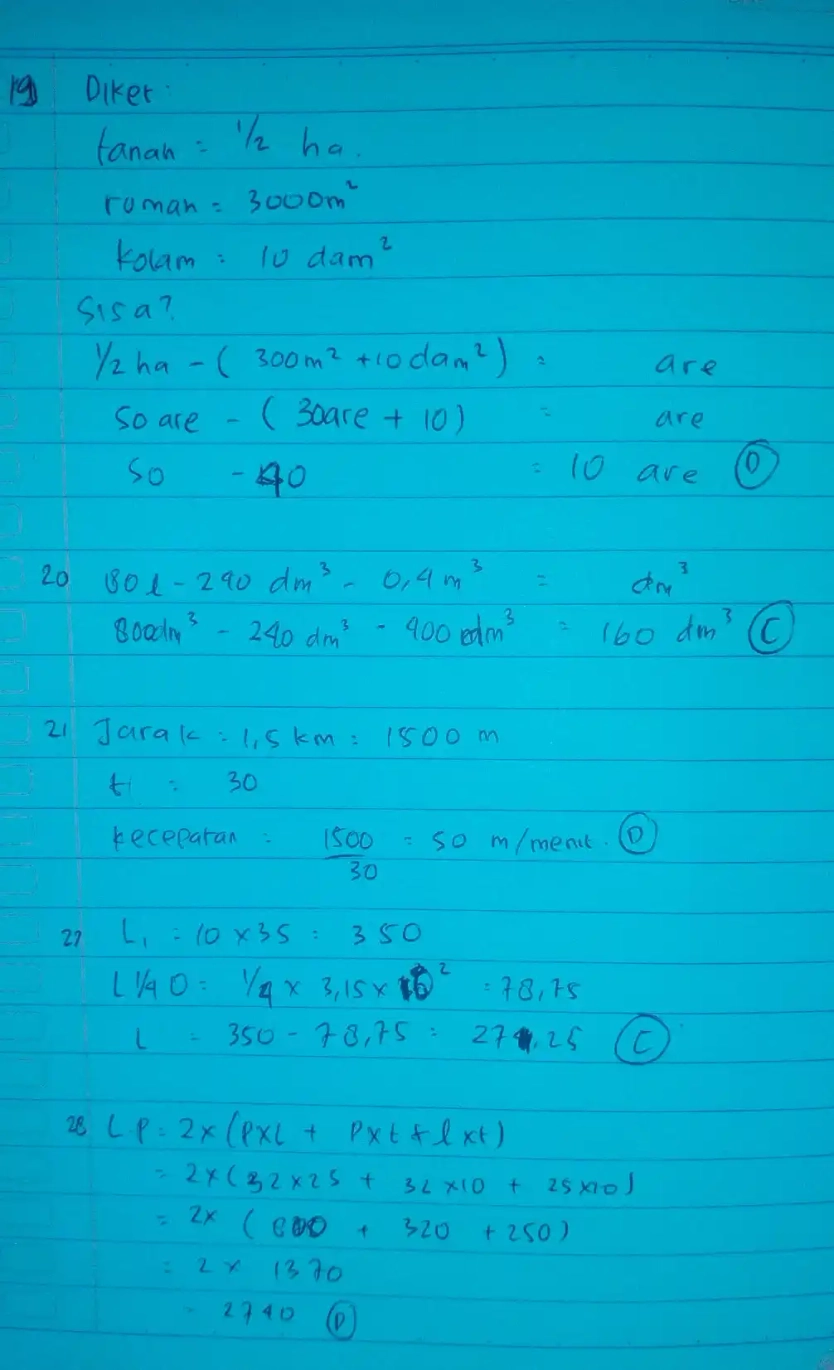 19 Diket :
tanah = 1/2 ha.
rumah = 3000m²
kolam = 10 dam²
Sisa?
1/2 ha - ( 300m² + 10 dam² ) = are
50 are - ( 30are + 10 ) = are
50 - 40 = 10 are D
20 80 l - 240 dm³ - 0,4 m³ = dm³
800dm³ - 240 dm³ - 400 dm³ = 160 dm³ C
21 Jarak = 1,5 km = 1500 m
t = 30
kecepatan = 1500/30 = 50 m/menit. D
27 L₁ = 10 x 35 = 350
L 1/4 O = 1/4 x 3,15 x 10² = 78,75
L = 350 - 78,75 = 271,25 C
28 LP = 2x (pxl + pxt + lxt)
= 2x (32x25 + 32x10 + 25x10)
= 2x (800 + 320 + 250)
= 2 x 1370
= 2740 D